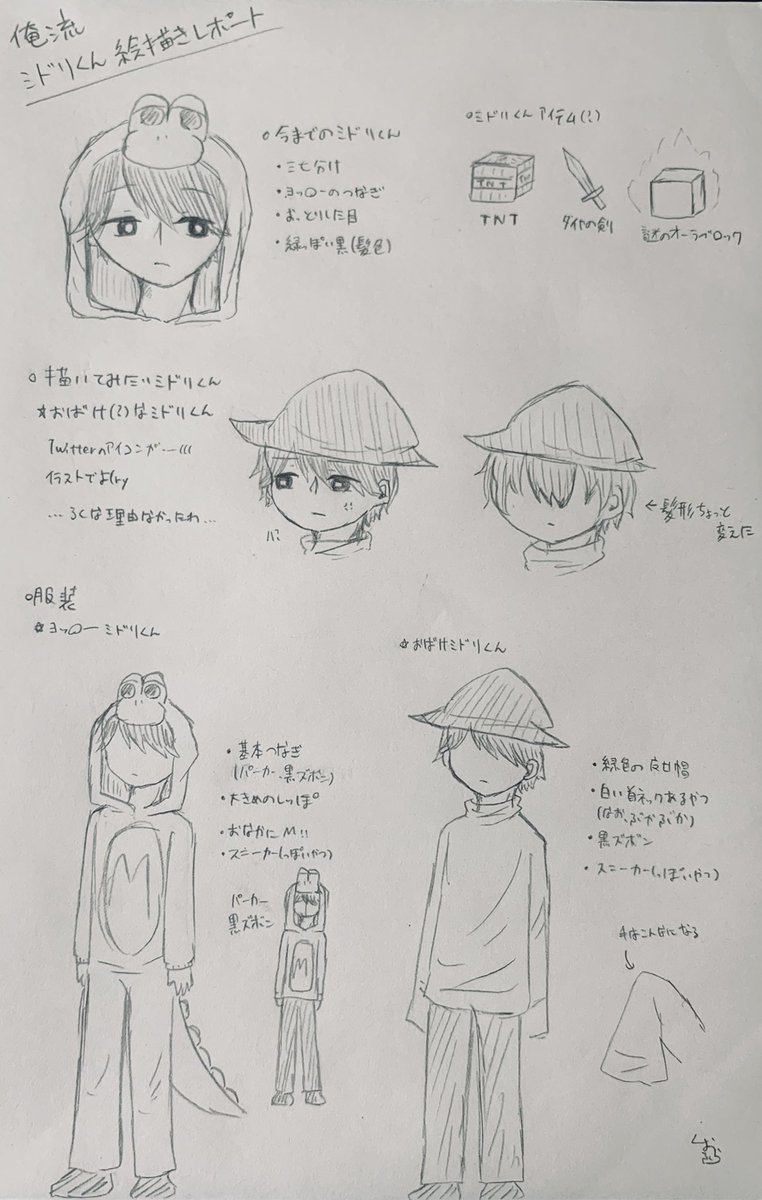 俺流
ミドリくん 絵描きレポート
○今までのミドリくん
・三七分け
・ヨッローのつなぎ
・おっとりした目
・緑っぽい黒(髪色)
○ミドリくんアイテム(?)
TNT
TNT
TNT
ダイヤの剣
謎のオーラブロック
○描いてみたいミドリくん
☆おばけ(?)なミドリくん
Twitterのアイコンが…(((
イラストでよ(ry
…ろくな理由なかったわ…
←髪形ちょっと
変えた
○服装
☆ヨッロー ミドリくん
・基本つなぎ
(パーカー、黒ズボン)
・大きめのしっぽ
・おなかにM!!
・スニーカー(っぽいやつ)
パーカー
黒ズボン
M
M
☆おばけミドリくん
・緑色の
・白い首ネックあるやつ
(なお、ぶかぶか)
・黒ズボン
・スニーカー(っぽいやつ)
手はこんなになる